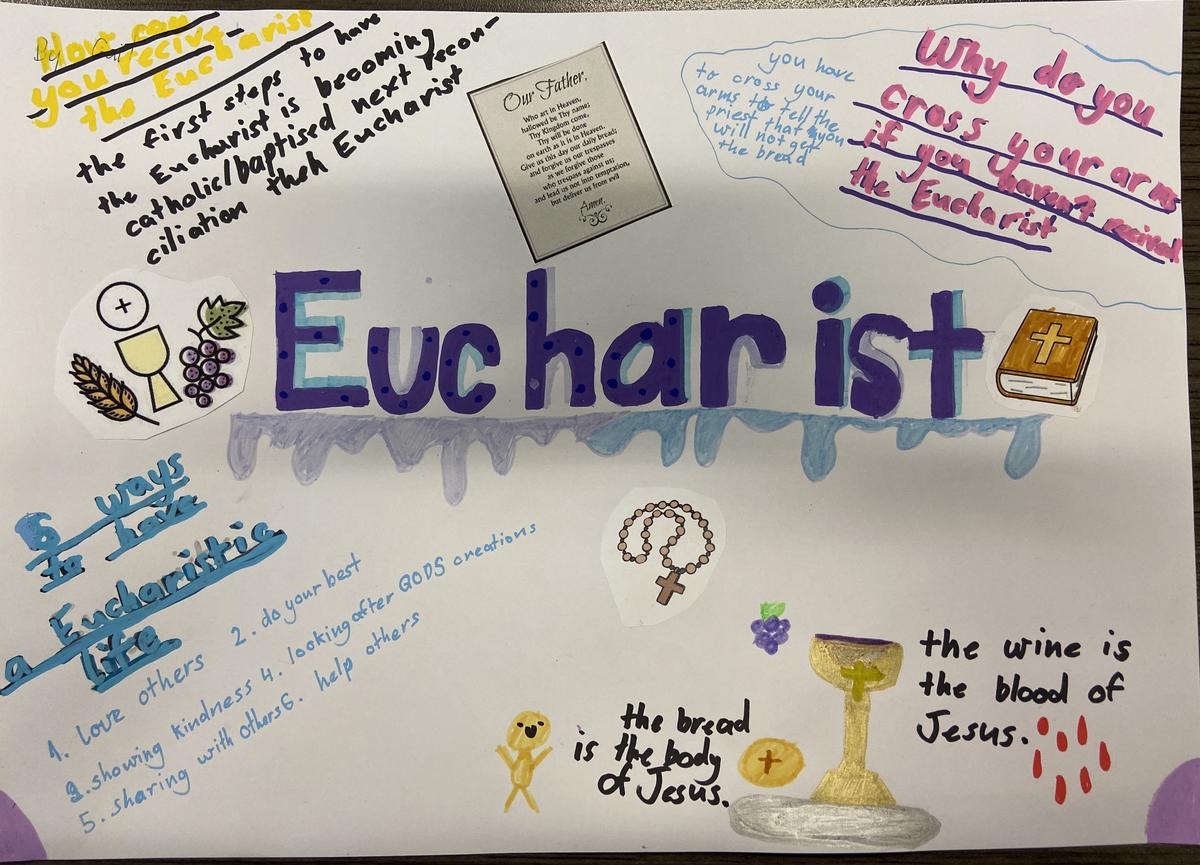 By
How can
you recive
the Eucharist
the first steps to have
the Eucharist is becoming
catholic/baptised next recon-
ciliation then Eucharist
Our Father,
Who art in Heaven,
hallowed be Thy name;
Thy Kingdom come,
Thy will be done
on earth as it is in Heaven.
Give us this day our daily bread;
and forgive us our trespasses
as we forgive those
who trespass against us;
and lead us not into temptation,
but deliver us from evil
Amen.
Why do you
cross your arms
if you haven't recived
the Eucharist
you have
to cross your
arms to tell the
priest that you
will not get
the bread
Eucharist
6 ways
to have
a Eucharistic
life
1. love others 2. do your best
3. showing kindness 4. looking after GODS creations
5. sharing with others 6. help others
the bread
is the body
of Jesus.
the wine is
the blood of
Jesus.